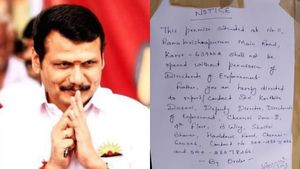 NOTICE
This premise situated at No.11,
Ramakrishnapuram Main Road,
Karur - 639001 shall not be
opened without permission of
Directorate of Enforcement
Further, you are hereby directed
to report/contact Shri Karthik
Dasari, Deputy Director, Directorate
of Enforcement, Chennai Zone-II,
Floor, B Wing, Shastri
Bhavan, Haddows Road, Chennai-
600006, Contact No
and
- By Order -